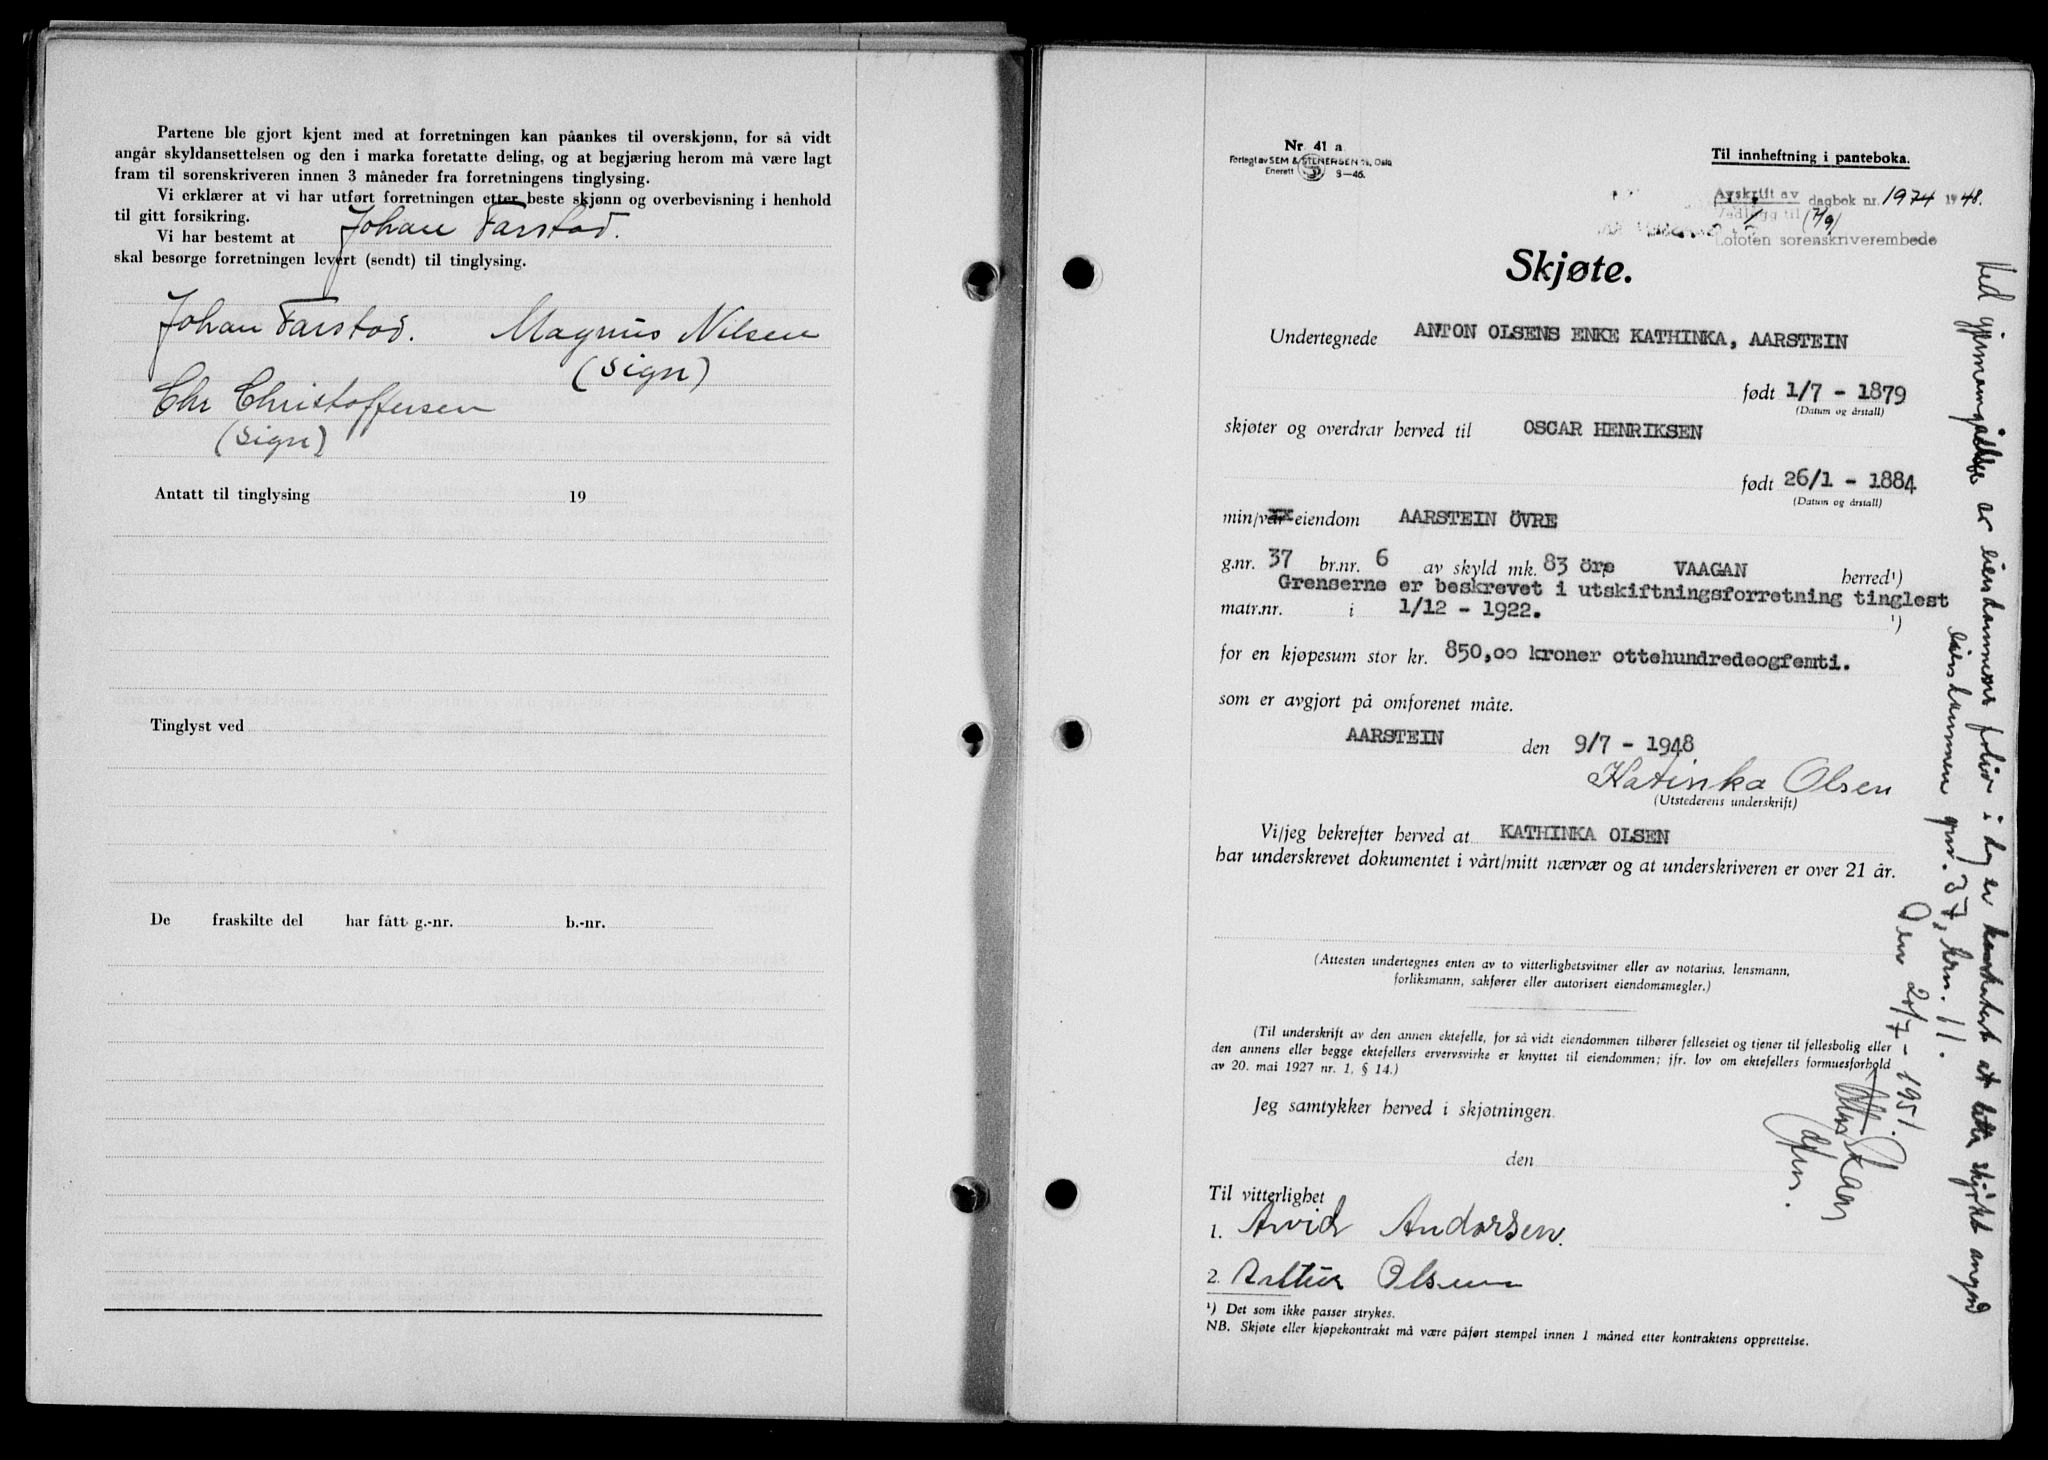 Partene ble gjort kjent med at forretningen kan påankes til overskjønn, for så vidt
angår skyldansettelsen og den i marka foretatte deling, og at begjæring herom må være lagt
fram til sorenskriveren innen 3 måneder fra forretningens tinglysing.
Vi erklærer at vi har utført forretningen etter beste skjønn og overbevisning i henhold
til gitt forsikring.
Vi har bestemt at Johan Farstad.
skal besørge forretningen levert (sendt) til tinglysing.
Johan Farstad. Magnus Nilsen
(sign)
Chr Christoffersen
(sign)
Antatt til tinglysing 19
Tinglyst ved
De fraskilte del har fått g.-nr. b.-nr.
Nr. 41 a
Forlagt av SEM & STENERSEN A/S, Oslo
Enerett 9—46.
Til innheftning i panteboka.
Avskrift av dagbok nr. 1974 1948.
Vedlegg til (7/9)
Lofoten sorenskriverembede
Skjøte.
Undertegnede ANTON OLSENS ENKE KATHINKA, AARSTEIN
født 1/7 - 1879
(Datum og årstall)
skjøter og overdrar herved til OSCAR HENRIKSEN
født 26/1 - 1884
(Datum og årstall)
min/vår eiendom AARSTEIN ÖVRE
g.nr. 37 br.nr. 6 av skyld mk. 83 öre VAAGAN herred¹)
Grenserne er beskrevet i utskiftningsforretning tinglest
matr.nr. i 1/12 - 1922. ¹)
for en kjøpesum stor kr. 850,oo kroner ottehundredeogfemti.
som er avgjort på omforenet måte.
AARSTEIN den 9/7 - 1948
Katinka Olsen
(Utstederens underskrift)
Vi/jeg bekrefter herved at KATHINKA OLSEN
har underskrevet dokumentet i vårt/mitt nærvær og at underskriveren er over 21 år.
(Attesten undertegnes enten av to vitterlighetsvitner eller av notarius, lensmann,
forliksmann, sakfører eller autorisert eiendomsmegler.)
(Til underskrift av den annen ektefelle, for så vidt eiendommen tilhører felleseiet og tjener til fellesbolig eller
den annens eller begge ektefellers ervervsvirke er knyttet til eiendommen; jfr. lov om ektefellers formuesforhold
av 20. mai 1927 nr. 1, § 14.)
Jeg samtykker herved i skjøtningen.
den
Til vitterlighet
1. Arvid Andersen.
2. Artur Olsen
¹) Det som ikke passer strykes.
NB. Skjøte eller kjøpekontrakt må være påført stempel innen 1 måned etter kontraktens opprettelse.
Ved gjennomgåelse av eiendommens folio i dag er konstatert at dette skjøtet angård
eiendommen gnr. 37, brn. 11.
Den 20/7-1951.